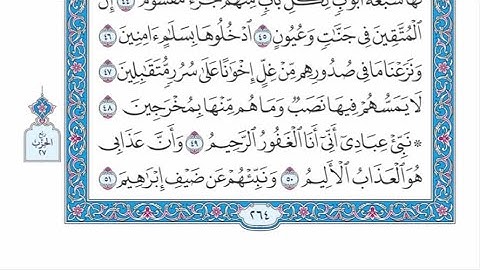 لَهَا سَبْعَةُ أَبْوَٰبٍ لِّكُلِّ بَابٍ مِّنْهُمْ جُزْءٌ مَّقْسُومٌ ٤٤ إِنَّ
ٱلْمُتَّقِينَ فِى جَنَّٰتٍ وَعُيُونٍ ٤٥ ٱدْخُلُوهَا بِسَلَٰمٍ ءَامِنِينَ ٤٦
وَنَزَعْنَا مَا فِى صُدُورِهِم مِّنْ غِلٍّ إِخْوَٰنًا عَلَىٰ سُرُرٍ مُّتَقَٰبِلِينَ ٤٧
لَا يَمَسُّهُمْ فِيهَا نَصَبٌ وَمَا هُم مِّنْهَا بِمُخْرَجِينَ ٤٨
۞ نَبِّئْ عِبَادِىٓ أَنِّىٓ أَنَا ٱلْغَفُورُ ٱلرَّحِيمُ ٤٩ وَأَنَّ عَذَابِى
هُوَ ٱلْعَذَابُ ٱلْأَلِيمُ ٥٠ وَنَبِّئْهُمْ عَن ضَيْفِ إِبْرَٰهِيمَ ٥١
ربع
الحزب
٢٧
٢٦٤